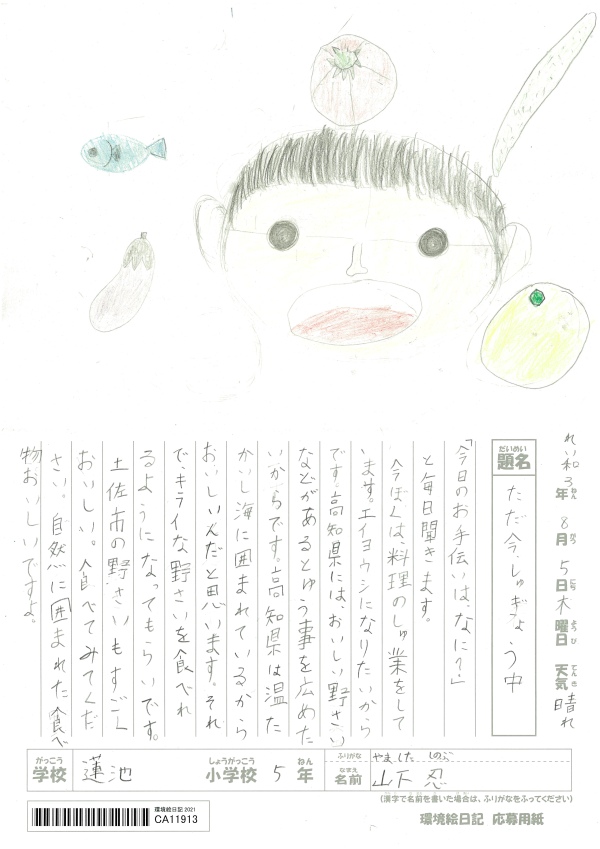 れい和3年ねん8月がつ5日にち木曜日ようび 天気てんき晴れ
だいめい
題名
ただ今、しゅぎょう中
「今日のお手伝いは、なに？」
と毎日聞きます。
今ぼくは、料理のしゅ業をして
います。エイヨウシになりたいから
です。高知県には、おいしい野さい
などがあるとゆう事を広めた
いからです。高知県は温た
かいし海に囲まれているから
おいしいんだと思います。それ
で、キライな野さいを食べれ
るようになってもらいです。
土佐市の野さいもすごく
おいしい。食べてみてくだ
さい。自然に囲まれた食べ
物おいしいですよ。
がっこう
学校
蓮池
しょうがっこう
小学校
5
ねん
年
ふりがな
やました しのぶ
なまえ
名前
山下 忍
(漢字で名前を書いた場合は、ふりがなをふってください)
環境絵日記 応募用紙
環境絵日記 2021
CA11913